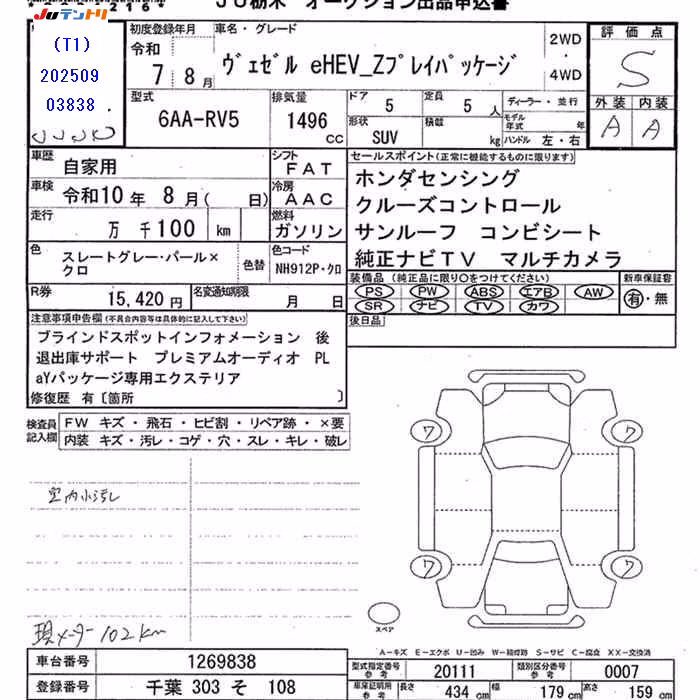 JU栃木 オークション出品申込書
JUテントリ
(T1)
202509
03838
初度登録年月
令和
7 8月
車名・グレード
ヴェゼル eHEV_Zプレイパッケージ
2WD
・
4WD
評価点
S
外装 内装
A A
型式
6AA-RV5
排気量
1496
CC
ドア
5
定員
5 人
形状
SUV
積載
kg
ディーラー・並行
モデル年式 年
ハンドル 左・右
車歴
自家用
シフト
FAT
車検
令和10年 8月( 日)
冷房
AAC
走行
万 千100 km
燃料
ガソリン
セールスポイント(正常に機能するものに限ります)
ホンダセンシング
クルーズコントロール
サンルーフ コンビシート
純正ナビTV マルチカメラ
色
スレートグレー・パール×
クロ
色替
色コード
NH912P・クロ
装備品 (純正品に限り○をつけてください)
PS PW ABS エアB AW
SR ナビ TV カワ
新車保証書
有・無
R券
15,420円
名変通知期限
月 日
後日品
注意事項申告欄(不具合内容等は具体的に記入して下さい)
ブラインドスポットインフォメーション 後
退出庫サポート プレミアムオーディオ PL
aYパッケージ専用エクステリア
修復歴 有〔箇所 〕
検査員
記入欄
FW キズ・飛石・ヒビ割・リペア跡・×要
内装 キズ・汚レ・コゲ・穴・スレ・キレ・破レ
室内小汚レ
現メーター102km
ワ ワ
ワ ワ
スペア
A－キズ E－エクボ U－凹み W－補修跡 S－サビ C－腐食 XX－交換済
車台番号
1269838
登録番号
千葉 303 そ 108
型式指定番号
参考
20111
類別区分番号
参考
0007
車庫証明用
参考
長さ 434 cm
幅 179 cm
高さ 159 cm